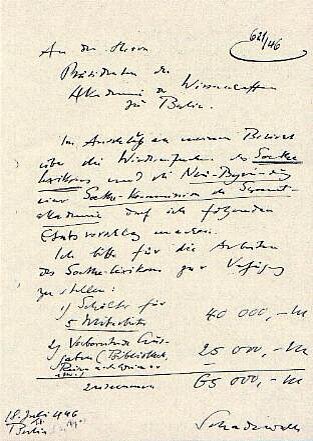 621/46
An den Herrn
Präsidenten der
Akademie der Wissenschaften
zu Berlin.
Im Anschluß an meinen Bericht
über die Wiederaufnahme des Goethe
Lexikons und die Neu-Begründung
einer Goethe-Kommission der Gesamt-
akademie darf ich folgenden
Etatsvorschlag machen.
Ich bitte für die Arbeiten
des Goethe-Lexikons zur Verfügung
zu stellen:
1) Gehälter für
5 Mitarbeiter 40 000,- M
2) Aus-
gaben (Bibliothek,
25 000,- M
zusammen 65 000,- M
18. Juli 1946
Berlin
Schadewaldt